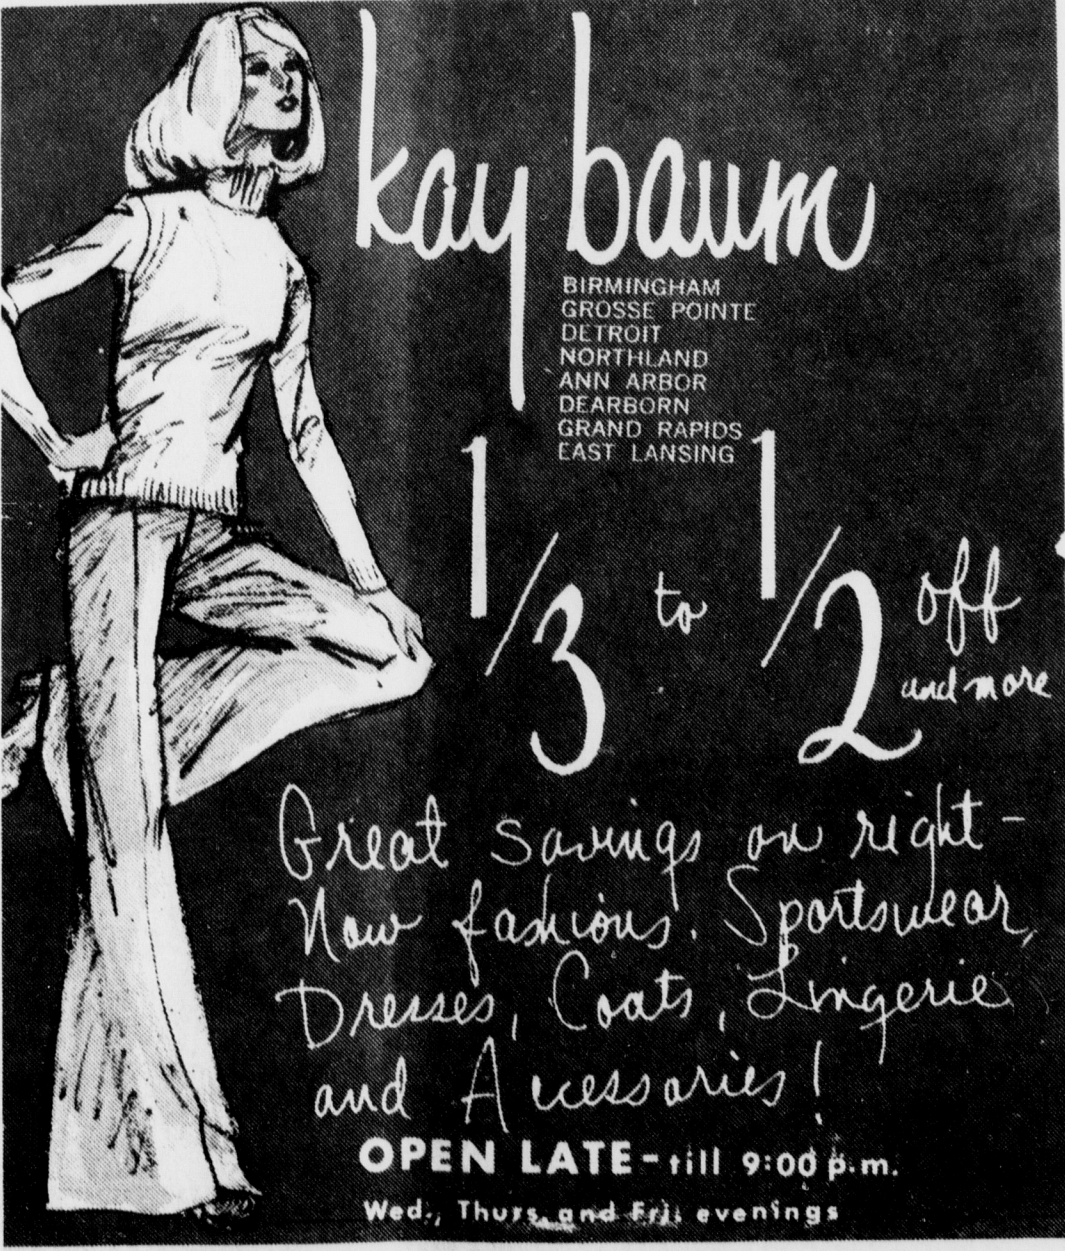 kay baum
BIRMINGHAM
GROSSE POINTE
DETROIT
NORTHLAND
ANN ARBOR
DEARBORN
GRAND RAPIDS
EAST LANSING
1/3 to 1/2 off
and more
Great savings on right-
Now fashions. Sportswear,
Dresses, Coats, Lingerie
and Accessories!
OPEN LATE-till 9:00 p.m.
Wed., Thurs. and Fri. evenings